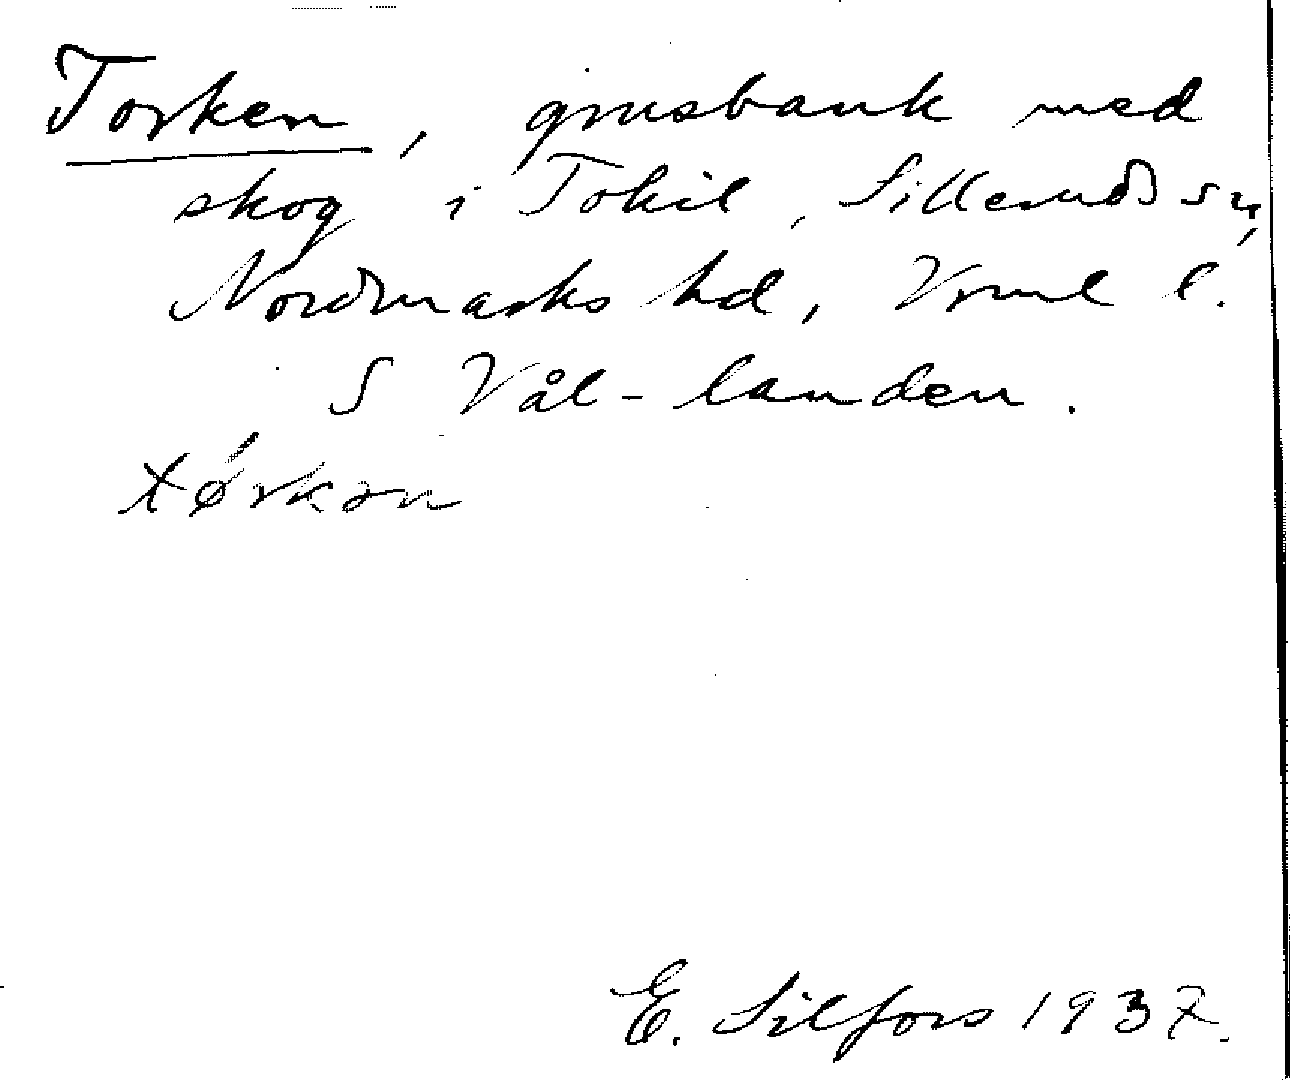 Torken, grusbank med
skog i Tokil, Silleruds sn,
Nordmarks hd, Vrml l.
S Vål-landen.
tǿrkən
E. Silfors 1937.